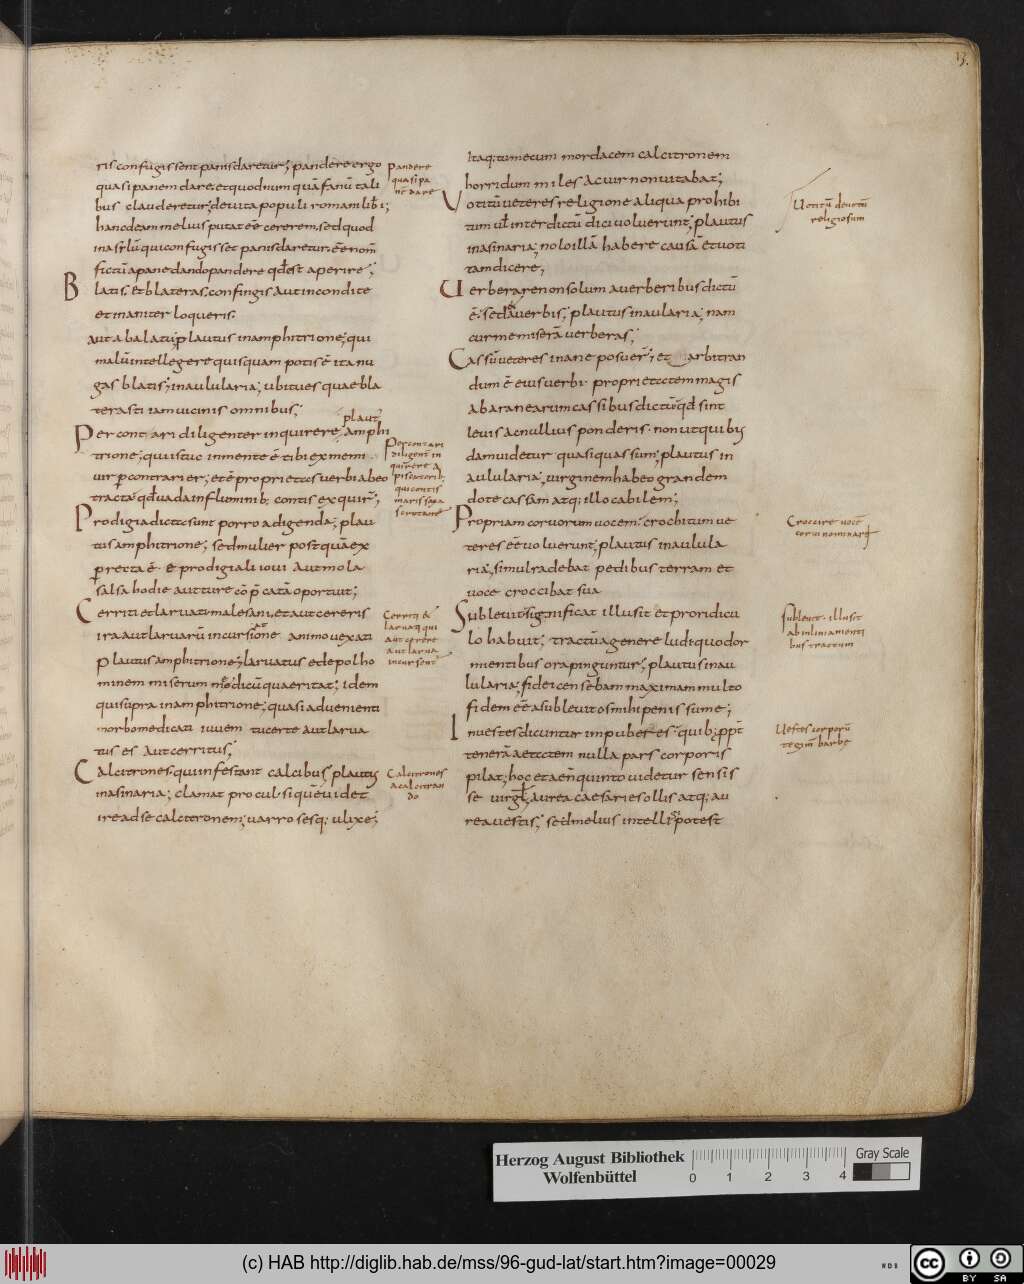 13.
ris confugissent panis daretur; pandere ergo
quasi panem dare et quod num quā fanū tali
bus clauderetur; de uita populi romani lib̄ i;
hanc deam melius putat eē cererem, sed quod
in asẏlū qui confugisset panis daretur, eē nom̄
fictū a pane dando pandere qđ est aperire;
Blatis, & blateras, confingis aut incondite
et inaniter loqueris.
aut a balatu; plautus in amphitrione; qui
malū intellegere quisquam potis ē ita nu
gas blatis; in aulularia; ubi tu es quae bla
terasti iam uicinis omnibus;
plaut'
Percontari diligenter inquirere, Amphi
trione; qui istuc in mente ē tibi ex me mi
uir percontarier; et ē proprietas uerbi ab eo
tracta qđ uada in fluminib; contis exquir̄;
Prodigia dicta sunt porro adigenda; plau
tus amphitrione; sed mulier postquā ex
perrecta ē & prodigiali ioui aut mola
salsa hodie aut ture cōp̄catā oportuit;
Cerriti et laruati male sani, et aut cereris
ira aut laruarū incursione animo uexati
plautus amphitrione; laruatus edepol ho
minem miserum medicū quaeritat; idem
qui supra in amphitrione; quasi aduenienti
morbo medicati iuuem tu certe aut larua
tus es aut cerritus;
Calcitrones, qui infestant calcibus plautus
in asinaria; clamat procul si quē uidet
ire ad se calcitronem; uarro sesq; ulixe;
pandere
quasi pa
nē dare
Percontari
diligent̄ in
quirere a
piscatorib;
qui contis
maris
scrutant̄
Cerriti &
laruati qui
aut cerere
aut larua
incursent̄
Calcitrones
a calcitran
do
Itaq; tum ecum mordacem calcitronem
horridum miles acuir non uitabat;
Uotitū ueteres religione aliqua prohibi
tum ut̄ interdictū dici uoluerunt; plautus
in asinaria; nolo illā habere causā & uoti
tam dicere;
Uerberare non solum a uerberibus dictū
ē, sed & a uerbis; plautus in aularia; nam
cur me miserā uerberas;
Cassū ueteres inane posuer̄; et arbitran
dum ē eius uerbi proprietatem magis
ab aranearum cassibus dictū qđ sint
leuis ac nullius ponderis. non ut quibus
dam uidetur quasi quassum; plautus in
aulularia; uirginem habeo grandem
dote cassam atq; illocabilem;
Propriam coruorum uocem; crochitum ue
teres eē uoluerunt; plautus in aulula
ria; simul radebat pedibus terram et
uoce croccibat sua
Subleuit, significat illusit & pro ridicu
lo habuit; tractū a genere ludi quo dor
mientibus ora pinguntur; plautus in au
lularia; fidei censebam maximam multo
fidem eē ea subleuit os mihi penis sume;
Inuestes dicuntur impuberes; quib; ppt̄
tenerā aetatem nulla pars corporis
pilat; hoc et aen̄ quinto uidetur sensis
se uirgł; aurea caesaries ollis atq; au
rea uestis; sed melius intelligi potest
Uotitū deuotū
religiosum
Croccire uocē
corui nominare
subleuit. illusit
ab inliniamenti
bus tractum
Uestes corporū
tegm̄ barbe
Herzog August Bibliothek
Wolfenbüttel
0 1 2 3 4
Gray Scale
(c) HAB http://diglib.hab.de/mss/96-gud-lat/start.htm?image=00029
WDB
cc BY SA